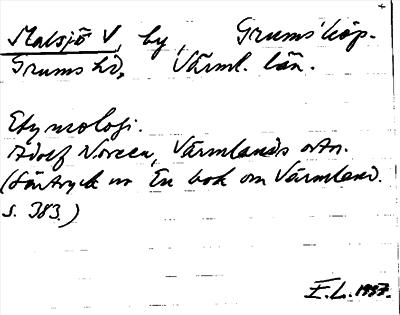 Malsjö V, by, Grums köp.
Grums hd, Värml. län.
Etymologi.
Adolf Noreen, Värmlands ortn.
(Särtryck ur En bok om Värmland.
s. 383.)
E.L. 1937.